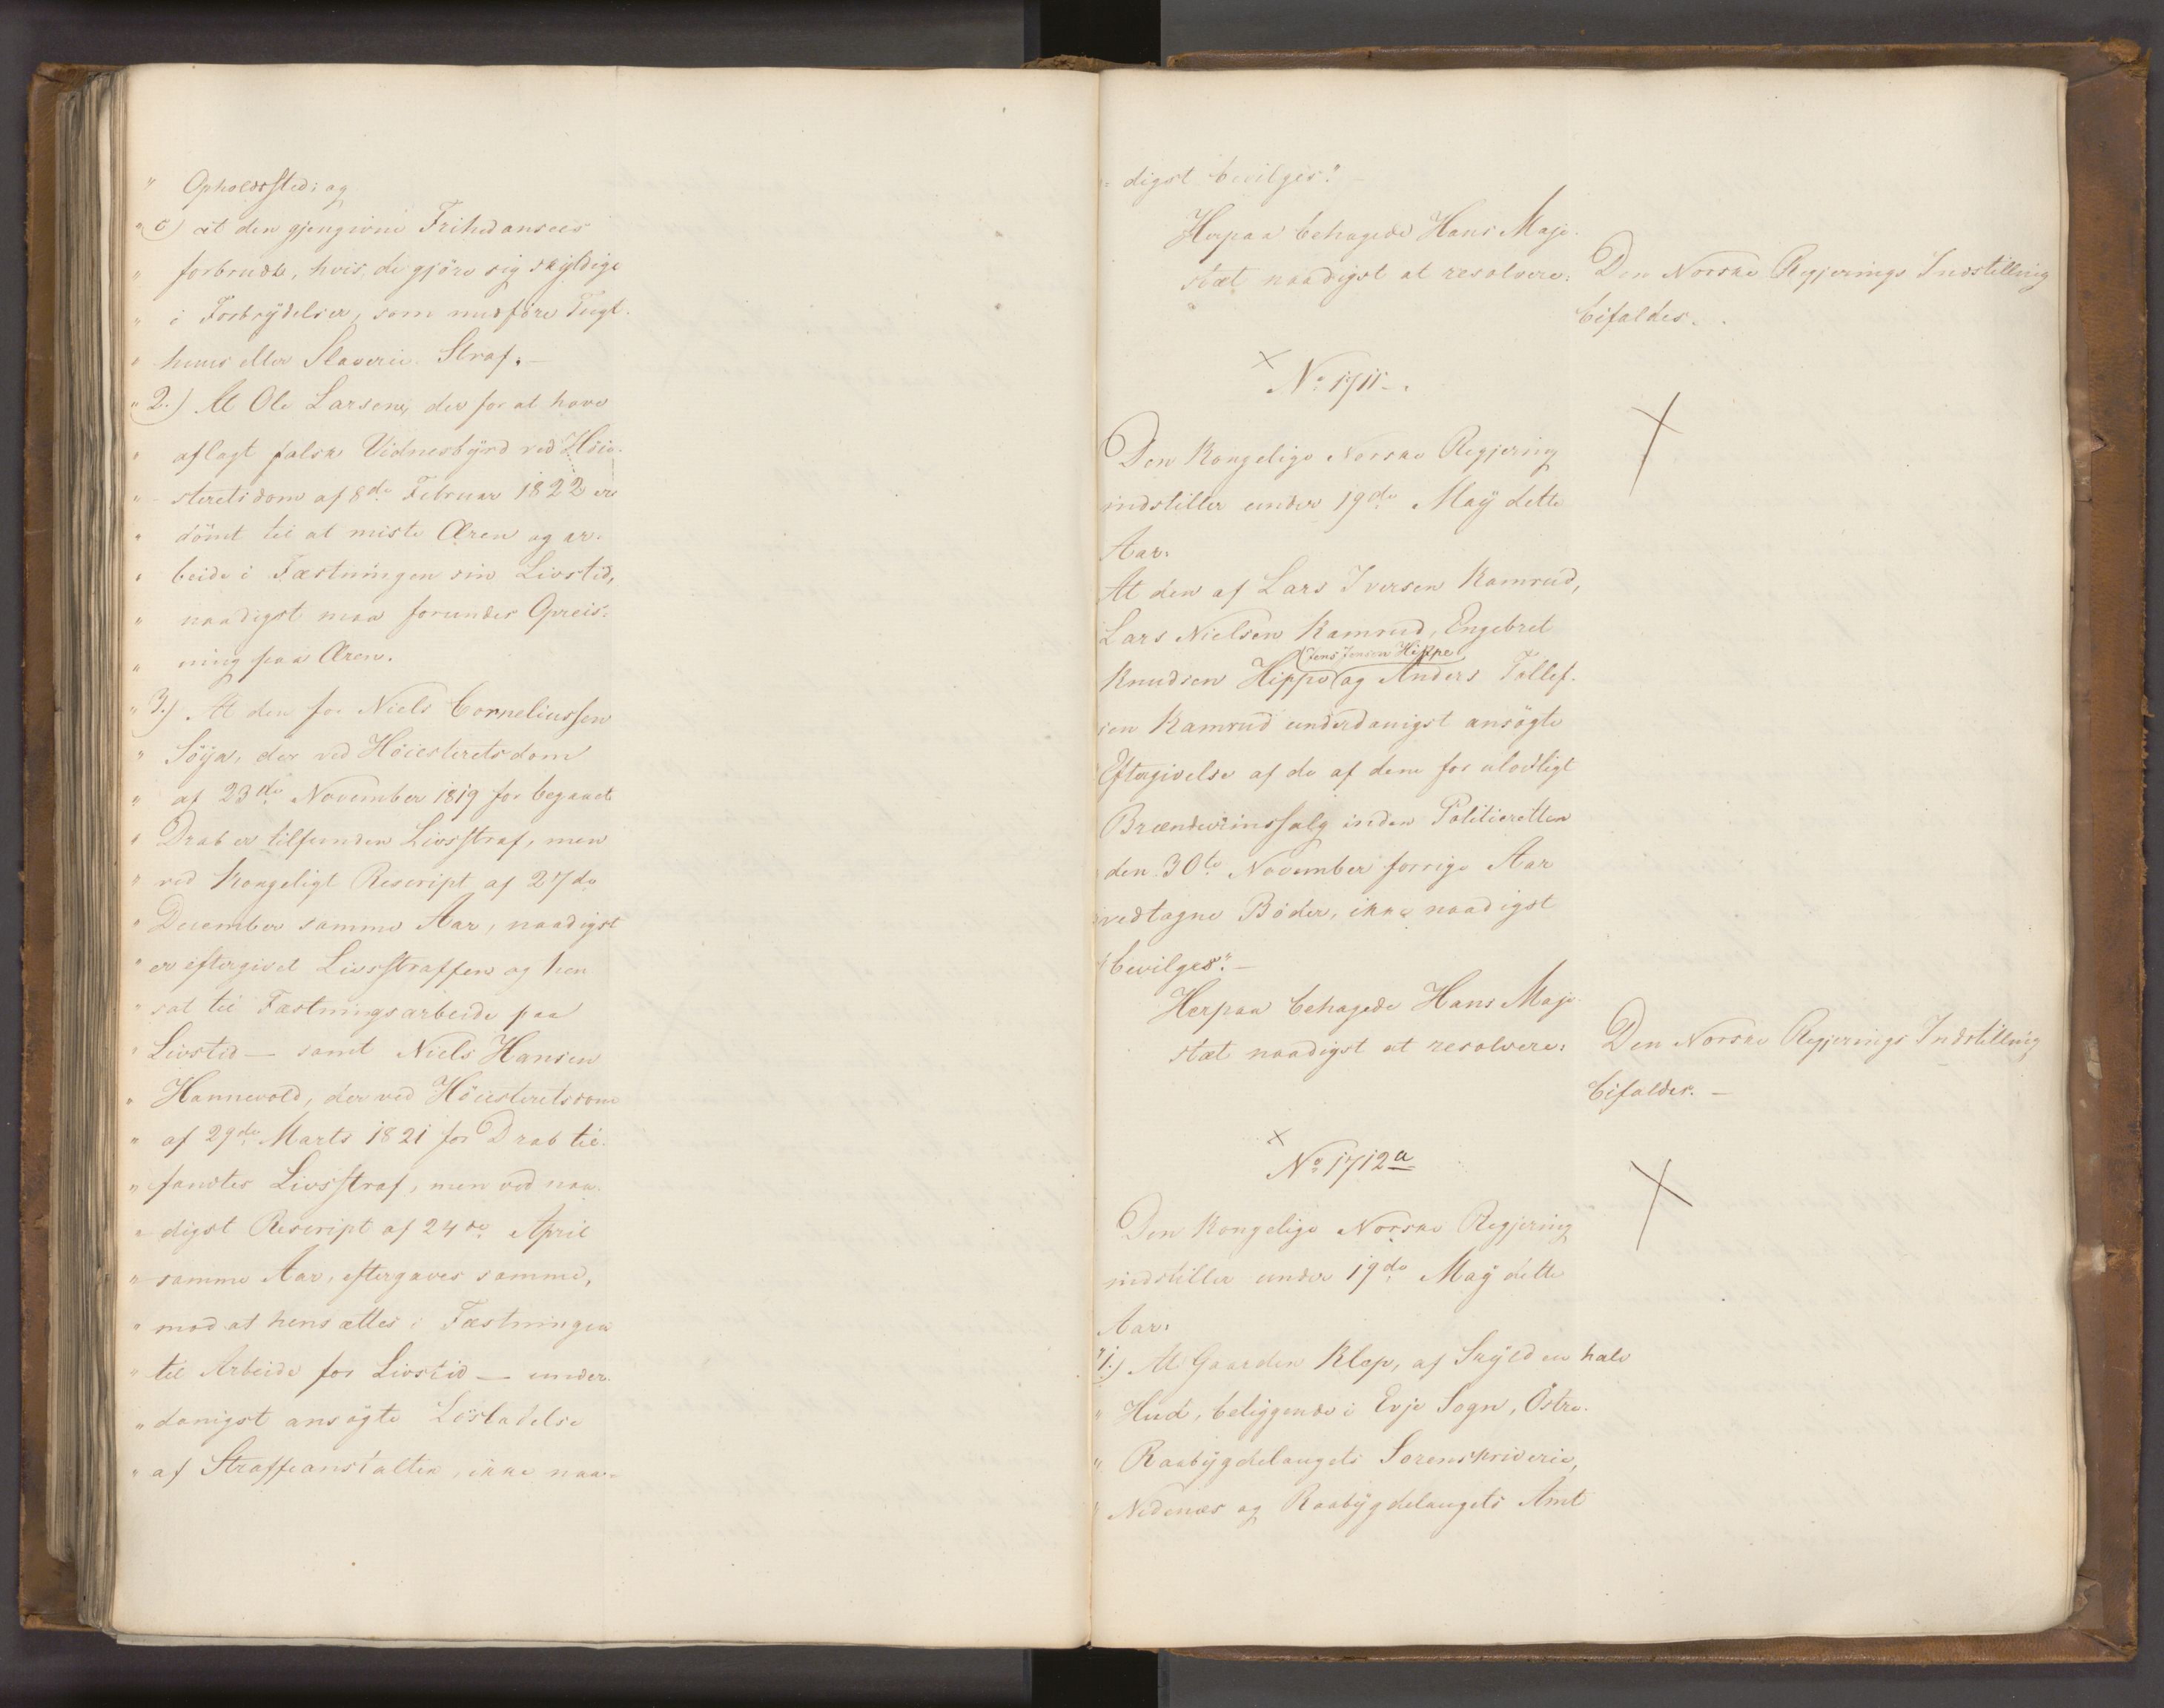 " Opholdssted; og
" c) at den gjengivne Frihed ansees
" forbrudt, hvis de gjöre sig skyldige
" i Forbrydelser, som medföre Tugt-
" huus eller Slaverie Straf. —
" 2.) At Ole Larsen, der for at have
" aflagt falsk Vidnesbyrd ved Höie-
" steretsdom af 8de Februar 1822 er
" dömt til at miste Æren og ar-
" beide i Fæstningen sin Livstid,
" naadigst maa forundes Opreis-
" ning paa Æren.
" 3.) At den for Niels Corneliussen
" Söya, der ved Höiesteretsdom
" af 23de November 1819 for begaaet
" Drab er tilfunden Livsstraf, men
" ved Kongeligt Rescript af 27de
" December samme Aar, naadigst
" er eftergivet Livsstraffen og hen
" sat til Fæstningsarbeide paa
" Livstid — samt Niels Hansen
" Hannevold, der ved Höiesteretsdom
" af 29de Marts 1821 for Drab til-
" fandtes Livsstraf, men ved naa-
" digst Rescript af 24de April
" samme Aar, eftergaves samme,
" mod at hensættes i Fæstningen
" til Arbeide for Livstid — under-
" danigst ansögte Lösladelse
" af Straffeanstalten, ikke naa-
" digst bevilges."
Herpaa behagede Hans Maje-
stæt naadigst at resolvere:
Den Norske Regjerings Indstilling
bifaldes.
No 1711.
Den Kongelige Norske Regjering
indstiller under 19de May dette
Aar:
At den af Lars Iversen Kamrud,
Lars Nielsen Kamrud, Engebret
Jens Jensen Hippe
Knudsen Hippe og Anders Tollef-
sen Kamrud underdanigst ansögte
Eftergivelse af de af dem for ulovligt
Brændeviinssalg inden Politieretten
den 30te November forrige Aar
vedtagne Böder, ikke naadigst
bevilges". —
Herpaa behagede Hans Maje-
stæt naadigst at resolvere:
Den Norske Regjerings Indstilling
bifaldes. —
No 1712a
Den Kongelige Norske Regjering
indstiller under 19de May dette
Aar:
" 1.) At Gaarden Klep, af Skyld en halv
" Hud, beliggende i Evje Sogn, Östre-
" Raabygdelaugets Sorenskriverie,
" Nedenæs og Raabygdelaugets Amt